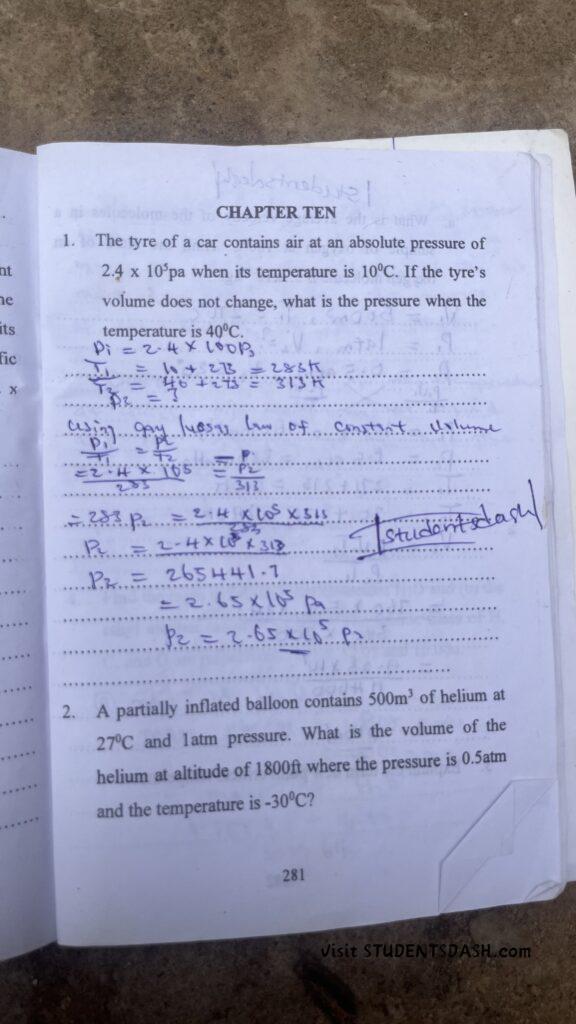 nt
ne
its
fic
x
CHAPTER TEN
1. The tyre of a car contains air at an absolute pressure of
2.4 x 10⁵pa when its temperature is 10⁰C. If the tyre's
volume does not change, what is the pressure when the
temperature is 40⁰C.
T₁ = 10 + 273 = 283K
T₂ = 40 + 273 = 313K
P₂ = ?
Using gay law of constant volume
P₁/T₁ = P₂/T₂
= 2.4 × 10⁵/283 = P₂/313
= 283 P₂ = 2.4 × 10⁵ × 313
P₂ = 2.4 × 10⁵ × 313
studentsdash
P₂ = 265441.7
= 2.65 × 10⁵ pa
P₂ = 2.65 × 10⁵ pa
2. A partially inflated balloon contains 500m³ of helium at
27⁰C and 1atm pressure. What is the volume of the
helium at altitude of 1800ft where the pressure is 0.5atm
and the temperature is -30⁰C?
281
Visit STUDENTSDASH.com